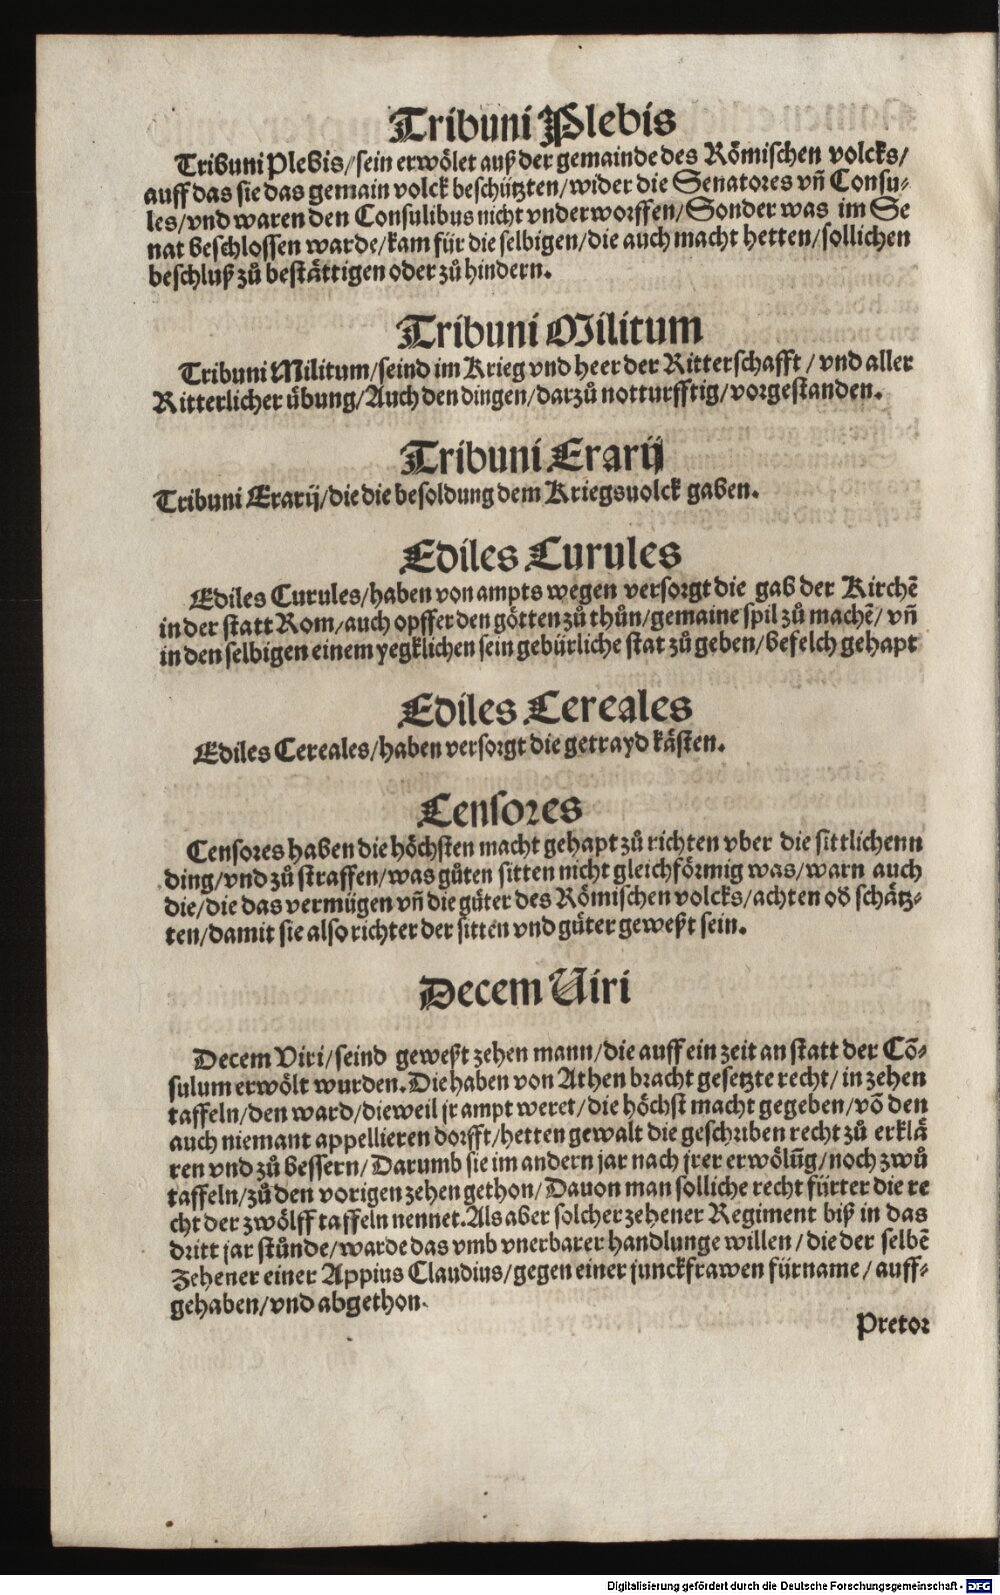 Tribuni Plebis
Tribuni Plebis/sein erwölet auß der gemainde des Römischen volcks/
auff das sie das gemain volck beschützten/wider die Senatores vn̄ Consu-
les/vnd waren den Consulibus nicht vnderworffen/Sonder was im Se
nat beschlossen warde/kam für die selbigen/die auch macht hetten/sollichen
beschluß zů bestättigen oder zů hindern.
Tribuni Militum
Tribuni Militum/seind im Krieg vnd heer der Ritterschafft/vnd aller
Ritterlicher übung/Auch den dingen/darzů notturfftig/vorgestanden.
Tribuni Erarij
Tribuni Erarij/die die besoldung dem Kriegsuolck gaben.
Ediles Curules
Ediles Curules/haben von ampts wegen versorgt die gab der Kirchē
in der statt Rom/auch opffer den götten zů thůn/gemaine spil zů machē/vn̄
in den selbigen einem yegklichen sein gebürliche stat zů geben/befelch gehapt
Ediles Cereales
Ediles Cereales/haben versorgt die getrayd kästen.
Censores
Censores haben die höchsten macht gehapt zů richten vber die sittlichenn
ding/vnd zů straffen/was gůten sitten nicht gleichförmig was/warn auch
die/die das vermügen vn̄ die güter des Römischen volcks/achten od̄ schätz-
ten/damit sie also richter der sitten vnd güter geweßt sein.
Decem Viri
Decem Viri/seind geweßt zehen mann/die auff ein zeit an statt der Cō-
sulum erwölt wurden. Die haben von Athen bracht gesetzte recht/in zehen
taffeln/den ward/dieweil jr ampt weret/die höchst macht gegeben/vō den
auch niemant appellieren dorfft/hetten gewalt die geschriben recht zů erklä
ren vnd zů bessern/Darumb sie im andern jar nach jrer erwölūg/noch zwů
taffeln/zů den vorigen zehen gethon/Dauon man solliche recht fürter die re
cht der zwölff taffeln nennet. Als aber solcher zehener Regiment biß in das
dritt jar stůnde/warde das vmb vnerbarer handlunge willen/die der selbē
Zehener einer Appius Claudius/gegen einer junckfrawen fürname/auff-
gehaben/vnd abgethon.
Pretor
Digitalisierung gefördert durch die Deutsche Forschungsgemeinschaft - DFG